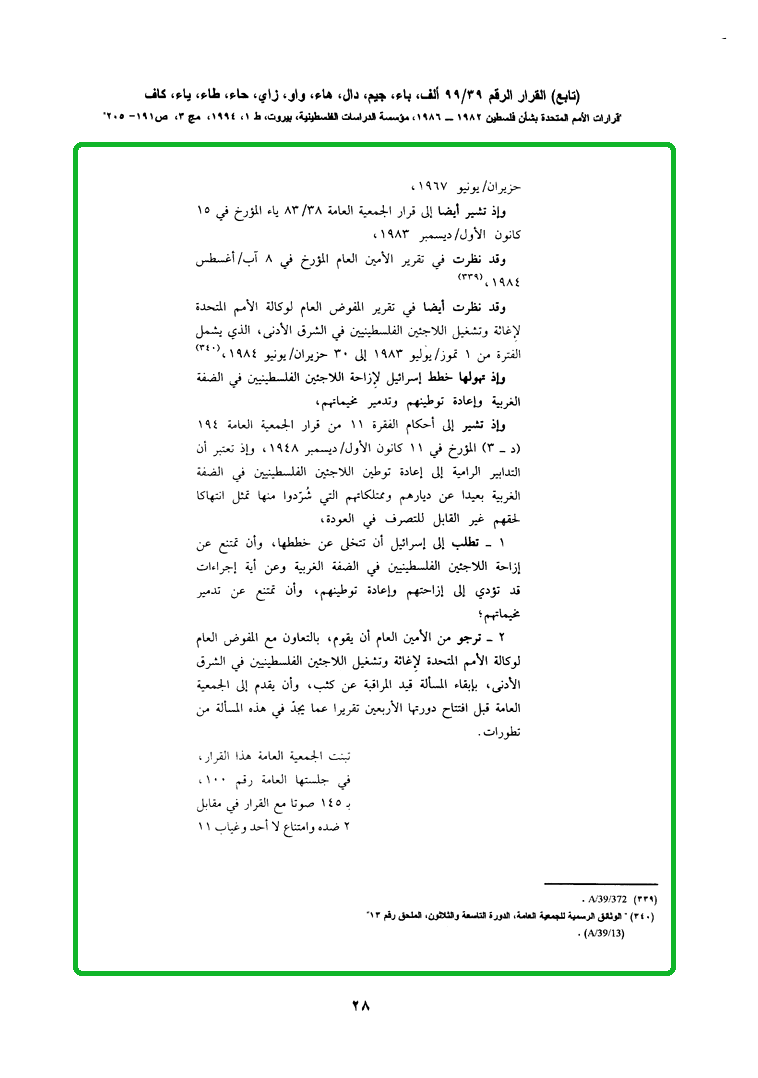 (تابع) القرار الرقم ٩٩/٣٩ ألف، باء، جيم، دال، هاء، واو، زاي، حاء، طاء، ياء، كاف
"قرارات الأمم المتحدة بشأن فلسطين ١٩٨٢ ــ ١٩٨٦، مؤسسة الدراسات الفلسطينية، بيروت، ط ١، ١٩٩٤، مج ٣، ص١٩١- ٢٠٥"
حزيران/يونيو ١٩٦٧،
وإذ تشير أيضا إلى قرار الجمعية العامة ٨٣/٣٨ ياء المؤرخ في ١٥
كانون الأول/ديسمبر ١٩٨٣،
وقد نظرت في تقرير الأمين العام المؤرخ في ٨ آب/أغسطس
١٩٨٤،(٣٣٩)
وقد نظرت أيضا في تقرير المفوض العام لوكالة الأمم المتحدة
لإغاثة وتشغيل اللاجئين الفلسطينيين في الشرق الأدنى، الذي يشمل
الفترة من ١ تموز/يوليو ١٩٨٣ إلى ٣٠ حزيران/يونيو ١٩٨٤،(٣٤٠)
وإذ تهولها خطط إسرائيل لإزاحة اللاجئين الفلسطينيين في الضفة
الغربية وإعادة توطينهم وتدمير مخيماتهم،
وإذ تشير إلى أحكام الفقرة ١١ من قرار الجمعية العامة ١٩٤
(د ـ ٣) المؤرخ في ١١ كانون الأول/ديسمبر ١٩٤٨، وإذ تعتبر أن
التدابير الرامية إلى إعادة توطين اللاجئين الفلسطينيين في الضفة
الغربية بعيدا عن ديارهم وممتلكاتهم التي شُرّدوا منها تمثل انتهاكا
لحقهم غير القابل للتصرف في العودة،
١ ـ تطلب إلى إسرائيل أن تتخلى عن خططها، وأن تمتنع عن
إزاحة اللاجئين الفلسطينيين في الضفة الغربية وعن أية إجراءات
قد تؤدي إلى إزاحتهم وإعادة توطينهم، وأن تمتنع عن تدمير
مخيماتهم؛
٢ ـ ترجو من الأمين العام أن يقوم، بالتعاون مع المفوض العام
لوكالة الأمم المتحدة لإغاثة وتشغيل اللاجئين الفلسطينيين في الشرق
الأدنى، بإبقاء المسألة قيد المراقبة عن كثب، وأن يقدم إلى الجمعية
العامة قبل افتتاح دورتها الأربعين تقريرا عما يجدّ في هذه المسألة من
تطورات.
تبنت الجمعية العامة هذا القرار،
في جلستها العامة رقم ١٠٠،
بـ ١٤٥ صوتا مع القرار في مقابل
٢ ضده وامتناع لا أحد وغياب ١١
(٣٣٩) A/39/372 .
(٣٤٠) "الوثائق الرسمية للجمعية العامة، الدورة التاسعة والثلاثون، الملحق رقم ١٣"
(A/39/13) .
٢٨